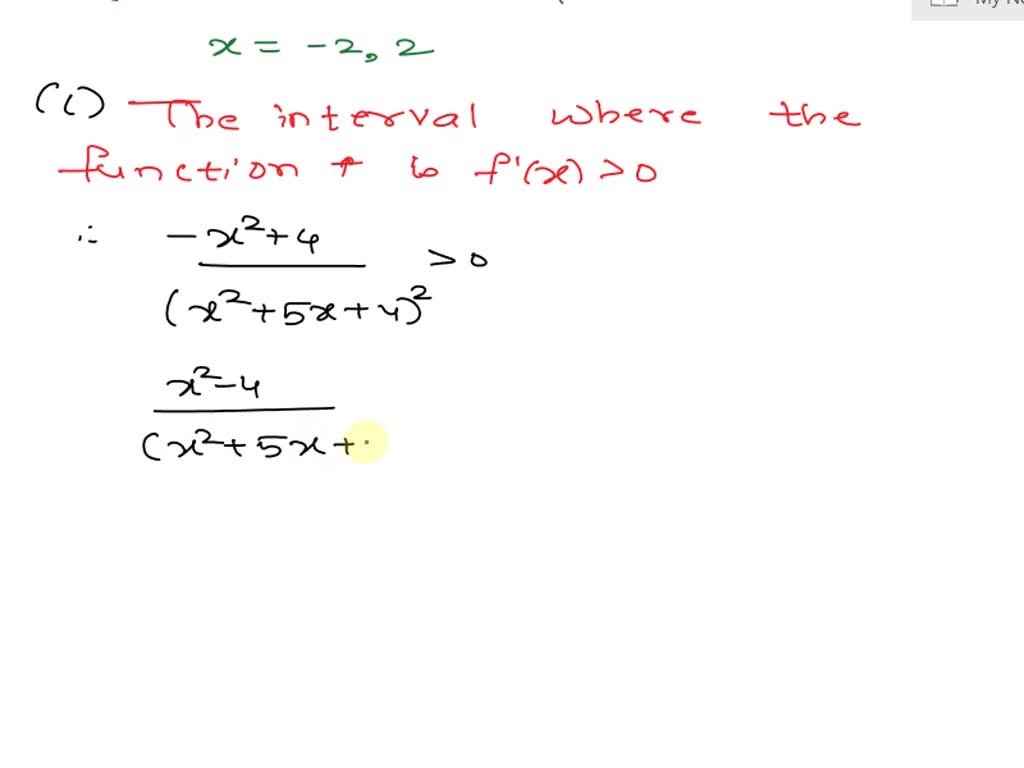 x = -2, 2
(i) The interval where the
function ↑ is f'(x) > 0
∴ -x²+4 / (x²+5x+4)² > 0
x²-4 / (x²+5x+